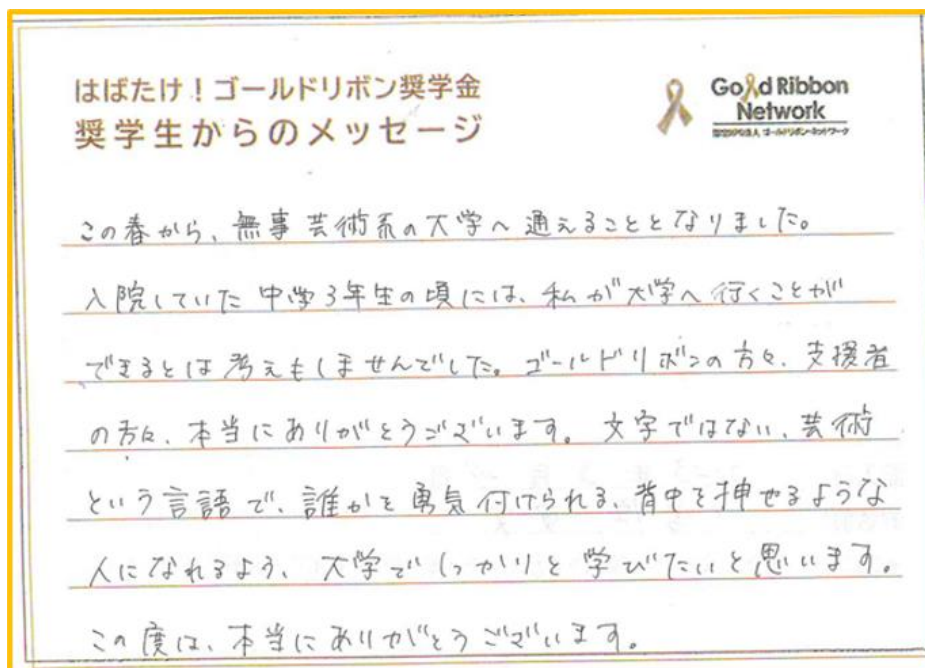 はばたけ！ゴールドリボン奨学金
奨学生からのメッセージ
Gold Ribbon
Network
認定NPO法人 ゴールドリボン・ネットワーク
この春から、無事芸術系の大学へ通えることとなりました。
入院していた中学3年生の頃には、私が大学へ行くことが
できるとは考えもしませんでした。ゴールドリボンの方々、支援者
の方々、本当にありがとうございます。文字ではない、芸術
という言語で、誰かを勇気付けられる、背中を押せるような
人になれるよう、大学でしっかりと学びたいと思います。
この度は、本当にありがとうございます。